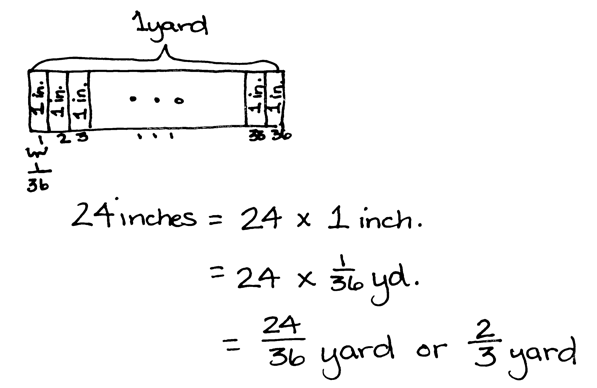 1 yard
1 in. 1 in. 1 in. . . . 1 in. 1 in.
1 2 3 . . . 35 36
1/36
24 inches = 24 x 1 inch.
= 24 x 1/36 yd.
= 24/36 yard or 2/3 yard